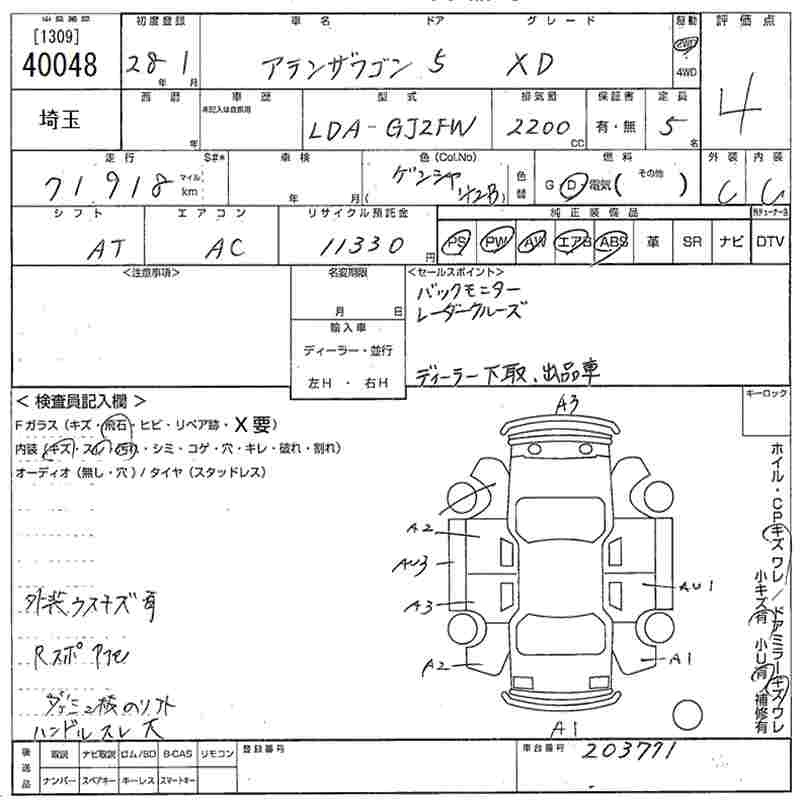 出品番号 初度登録 車名 ドア グレード 駆動 評価点
[1309]
40048 28 1 アテンザワゴン 5 XD 2WD 4
年 月 4WD
埼玉 西暦 車歴 型式 排気量 保証書 定員
未記入は自家用
LDA-GJ2FW 2200 有・無 5
年 CC 名
走行 S#* 車検 色(Col.No) 燃料 外装 内装
71,918 マイル km 年 月 ( 42B) 色替 G D 電気 ( その他 ) C C
シフト エアコン リサイクル預託金 純正装備品
AT AC 11330 円 PS PW AW エアB ABS 革 SR ナビ DTV
<注意事項> 名変期限 <セールスポイント>
バックモニター
月 日 レーダークルーズ
輸入車
ディーラー・並行
左H ・ 右H ディーラー下取、出品車
< 検査員記入欄 > キーロック
Fガラス (キズ・飛石・ヒビ・リペア跡・X要)
内装 (キズ・スレ・汚れ・シミ・コゲ・穴・キレ・破れ・割れ)
オーディオ (無し・穴) / タイヤ (スタッドレス)
A3
A2
AU3
A3
A2
AU1
A1
A1
ホイル・CPキズ ワレ / ドアミラーキズ ワレ
小キズ有 小U有 補修有
外装ウスキズ有
Rスポ
ハンドルスレ大
後送品 取説 ナビ取説 ロム/SD B-CAS リモコン 登録番号 車台番号 203771
ナンバー スペアキー キーレス スマートキー